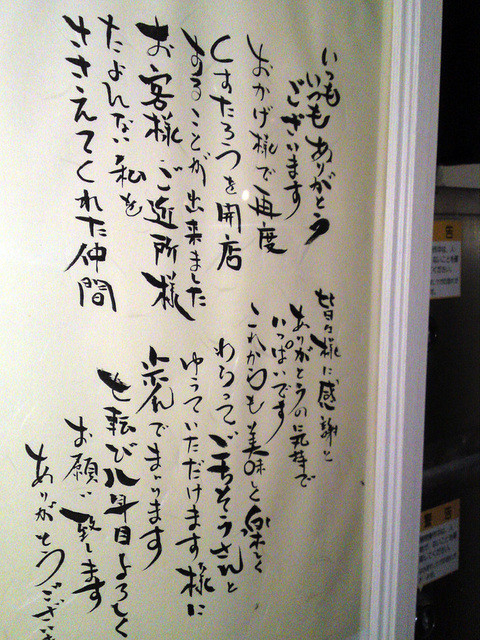 いつも
いつもありがとう
ございます
おかげ様で再度
くすたろうを開店
することが出来ました
お客様ご近所様
たよんない私を
ささえてくれた仲間
皆々様に感謝と
ありがとうの気持で
いっぱいです
これからも美味と楽しく
わらってごちそうさんと
ゆうていただけます様に
でまいります
七転び八年目よろしく
お願い致します
ありがとうござい